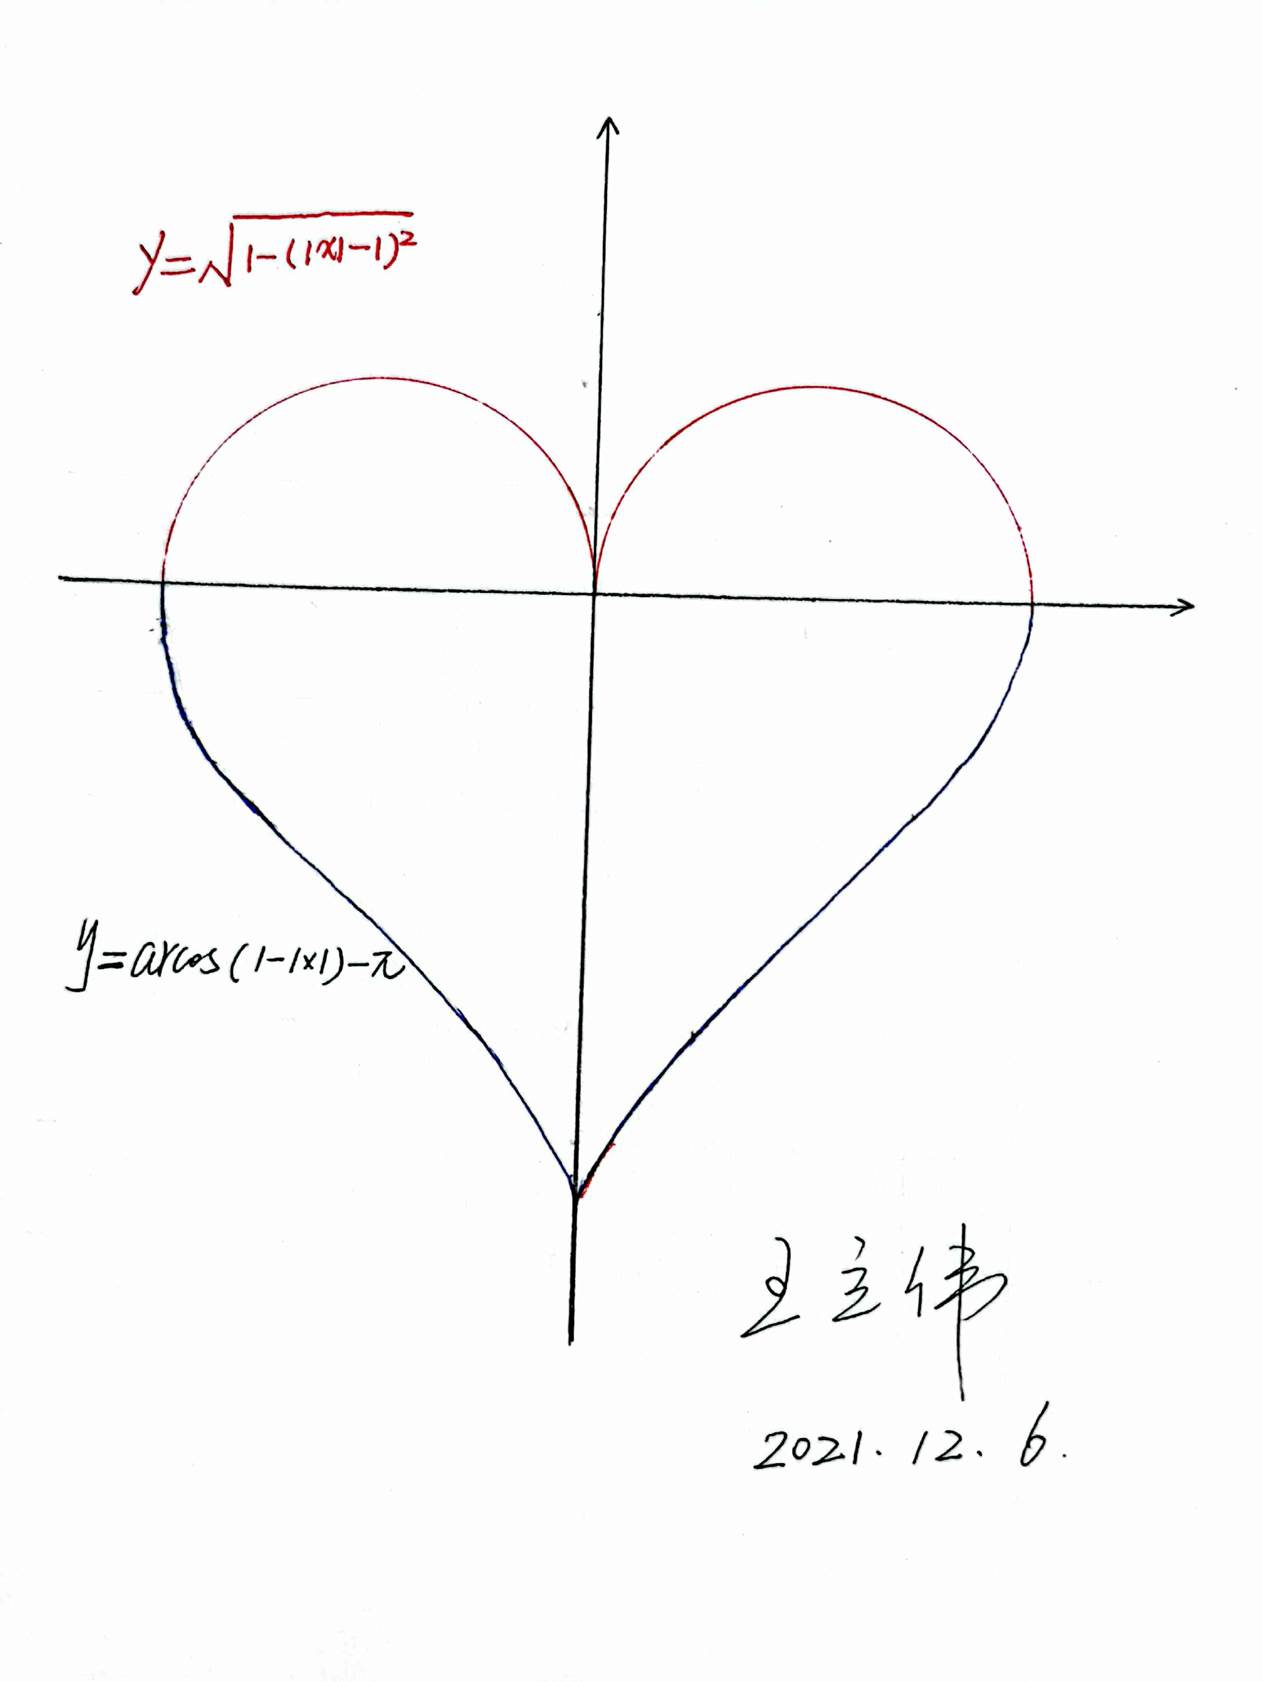 y=√1-(|x|-1)²
y=arcos(1-|x|)-π
王立伟
2021.12.6.